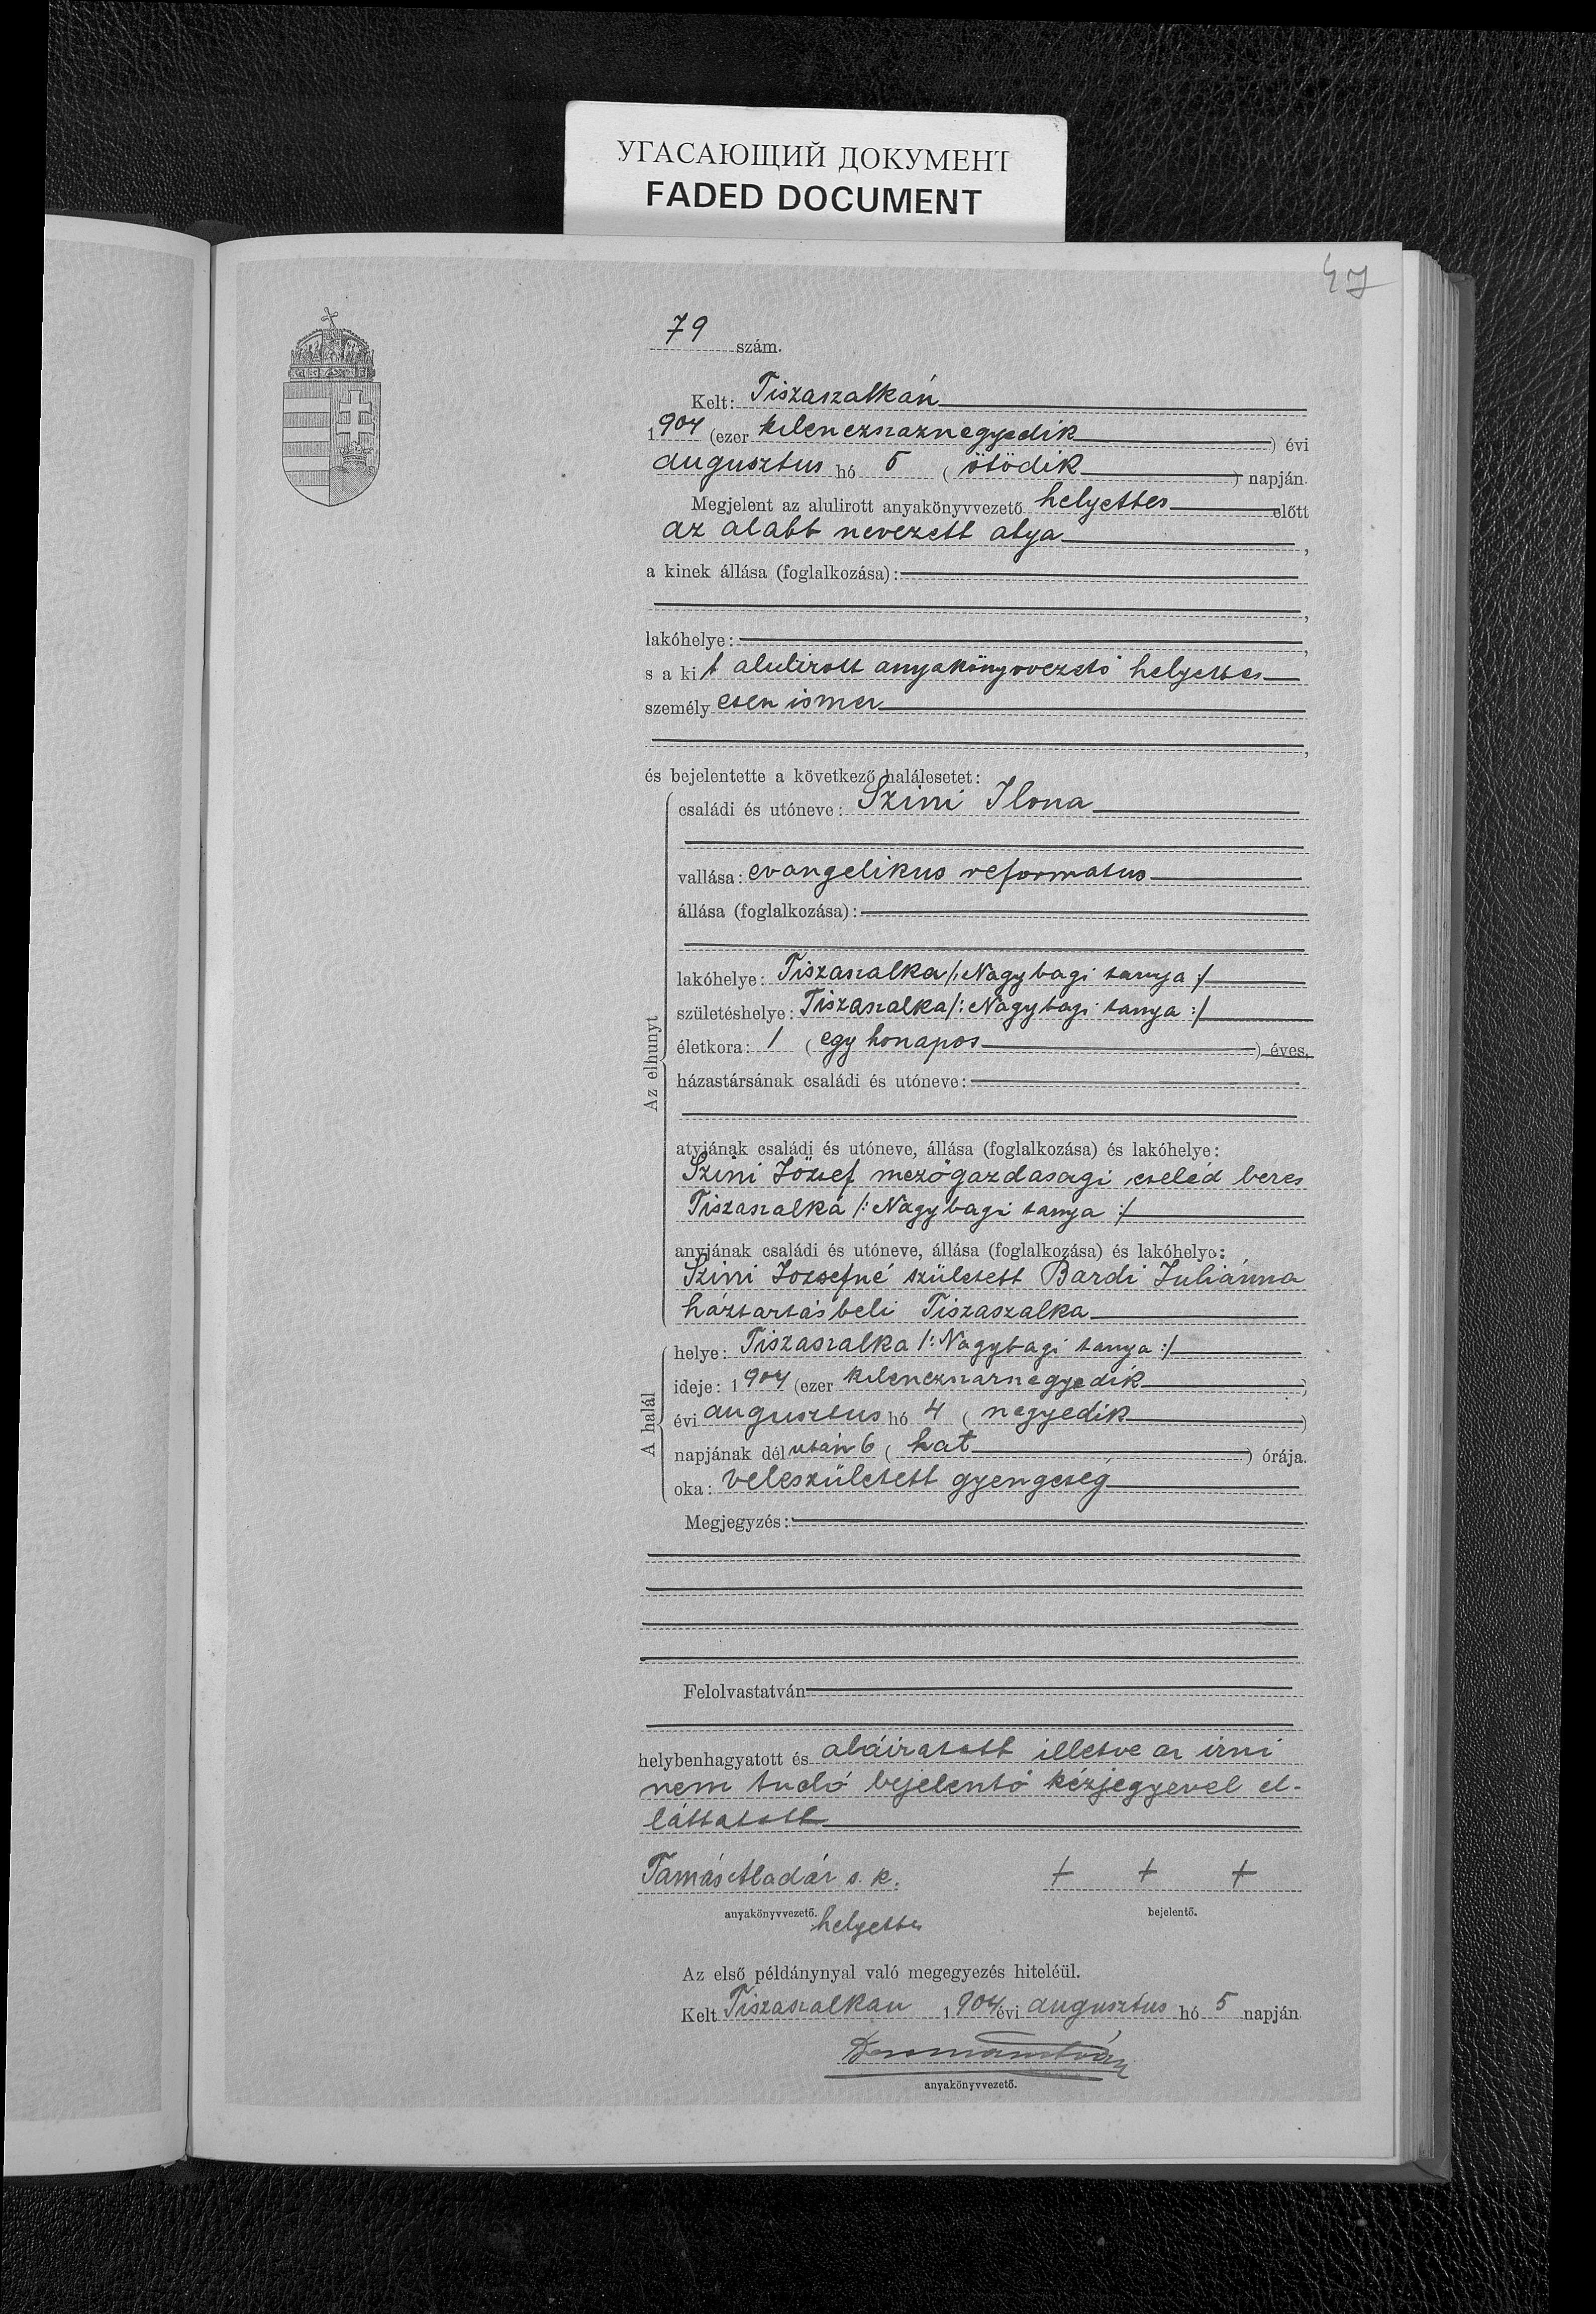 УГАСАЮЩИЙ ДОКУМЕНТ
FADED DOCUMENT
47
79 szám.
Kelt: Tiszaszalkán
1904 (ezer kilenczszaznegyedik) évi
augusztus hó 5 (ötödik) napján.
Megjelent az alulirott anyakönyvvezető helyettes előtt
az alabb nevezett atya,
a kinek állása (foglalkozása):
lakóhelye:
s a kit alulirott anyakönyvvezető helyettes
személyesen ismer
és bejelentette a következő halálesetet:
Az elhunyt
családi és utóneve: Szini Ilona
vallása: evangelikus reformatus
állása (foglalkozása):
lakóhelye: Tiszaszalka /: Nagybagi tanya :/
születéshelye: Tiszaszalka /: Nagybagi tanya :/
életkora: 1 (egy honapos) éves.
házastársának családi és utóneve:
atyjának családi és utóneve, állása (foglalkozása) és lakóhelye:
Szini József mezőgazdasagi cseléd beres
Tiszaszalka /: Nagybagi tanya :/
anyjának családi és utóneve, állása (foglalkozása) és lakóhelye:
Szini Józsefné született Bardi Juliánna
háztartásbeli Tiszaszalka
A halál
helye: Tiszaszalka /: Nagybagi tanya :/
ideje: 1904 (ezer kilenczszaznegyedik)
évi augusztus hó 4 (negyedik)
napjának délután 6 (hat) órája.
oka: veleszületett gyengeség
Megjegyzés:
Felolvastatván
helybenhagyatott és aláiratott illetve az irni
nem tudó bejelentő kézjegyevel el-
láttatott
Tamás Aladár s. k. + + +
anyakönyvvezető. helyettes bejelentő.
Az első példánynyal való megegyezés hiteléül.
Kelt Tiszaszalkan 1904 évi augusztus hó 5 napján
anyakönyvvezető.